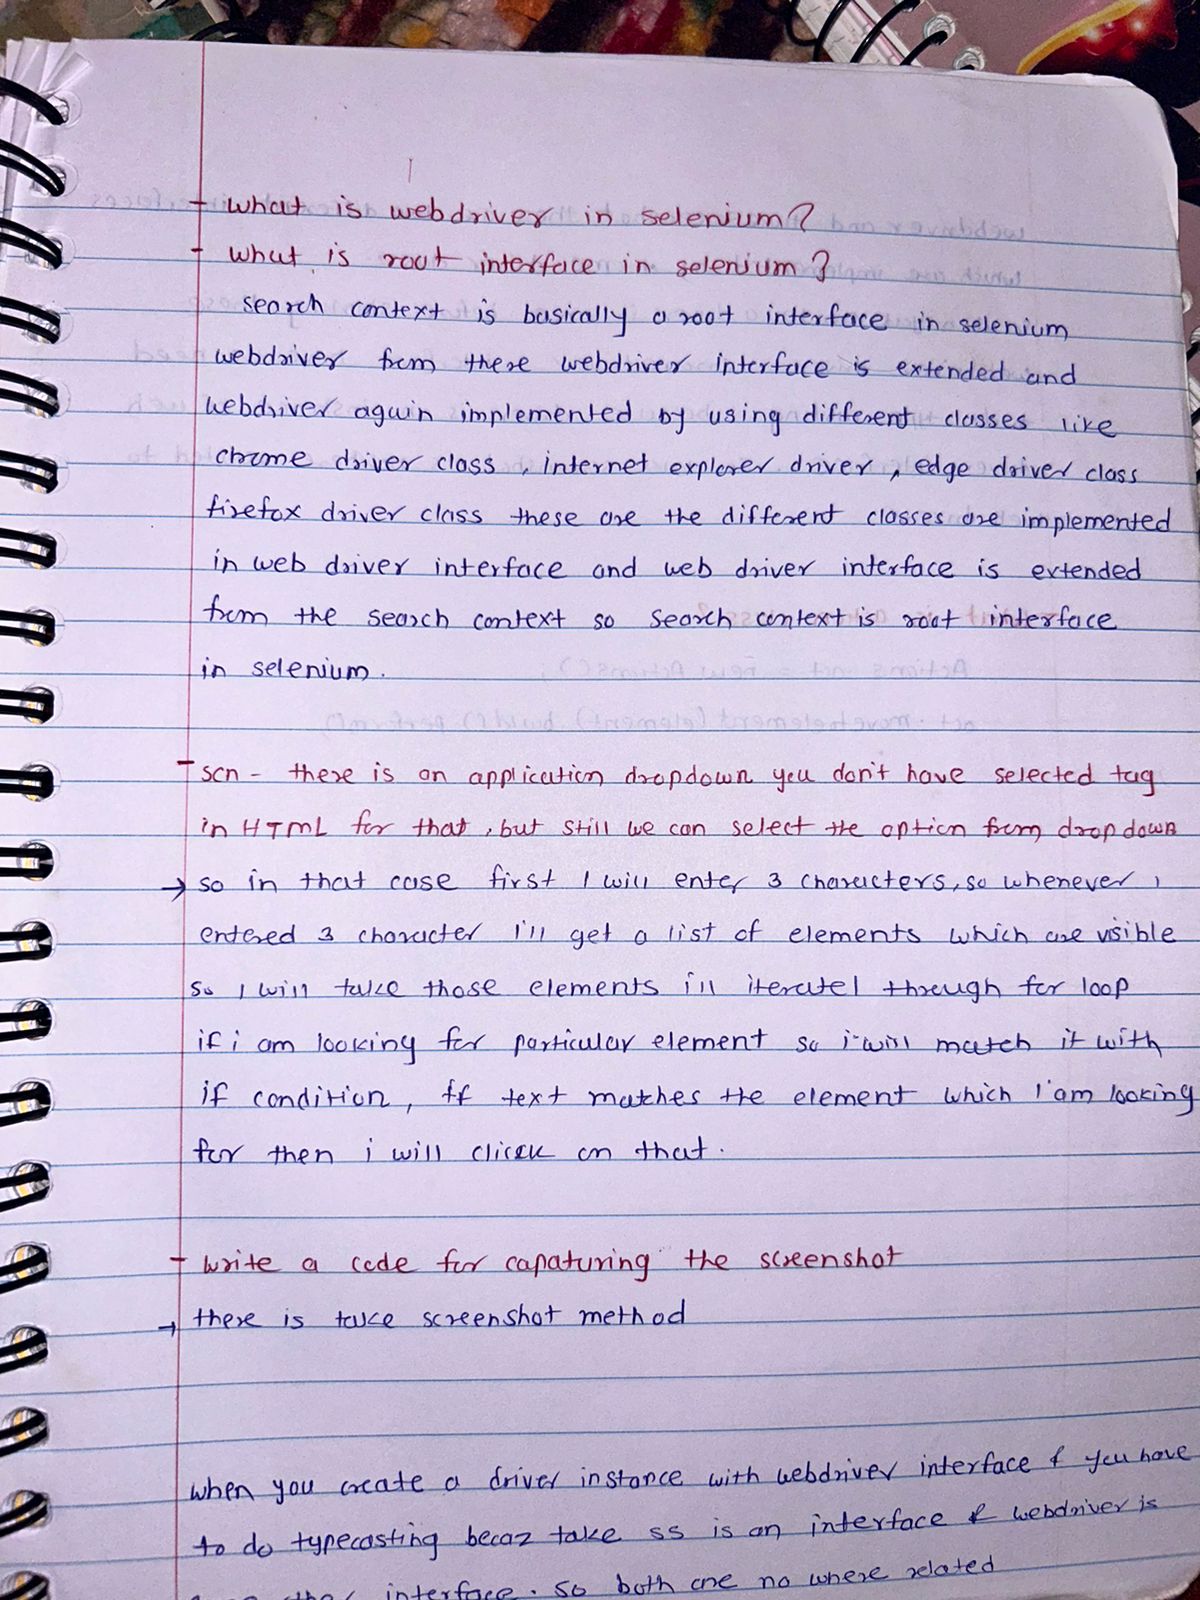 - what is webdriver in selenium?
- what is root interface in selenium?
search context is basically a root interface in selenium
webdriver from there webdriver interface is extended and
webdriver again implemented by using different classes like
chrome driver class, internet explorer driver, edge driver class
firefox driver class these are the different classes are implemented
in web driver interface and web driver interface is extended
from the search context so search context is root interface
in selenium.
- scn - there is an application dropdown you don't have selected tag
in HTML for that, but still we can select the option from dropdown
→ so in that case first I will enter 3 characters, so whenever i
entered 3 character I'll get a list of elements which are visible
so I will take those elements ill iterate through for loop
if i am looking for particular element so i will match it with
if condition, if text matches the element which I am looking
for then i will click on that.
- write a code for capaturing the screenshot
→ there is take screenshot method
when you create a driver instance with webdriver interface & you have
to do typecasting becoz take ss is an interface & webdriver is
interface. so both are no where related